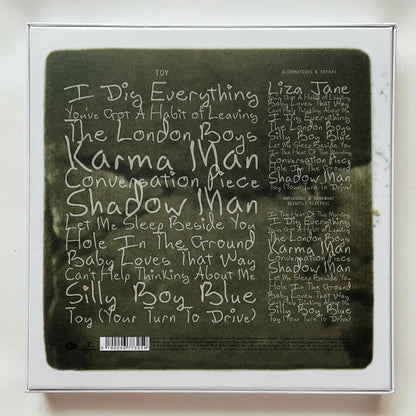 TOY
I Dig Everything
You've Got A Habit of Leaving
The London Boys
Karma Man
Conversation Piece
Shadow Man
Let Me Sleep Beside You
Hole In The Ground
Baby Loves That Way
Can't Help Thinking About Me
Silly Boy Blue
Toy (Your Turn To Drive)
ALTERNATIVES & EXTRAS
Liza Jane
You've Got A Habit of Leaving
Baby Loves That Way
Can't Help Thinking About Me
I Dig Everything
The London Boys
Silly Boy Blue
Let Me Sleep Beside You
In The Heat Of The Morning
Conversation Piece
Hole In The Ground
Shadow Man
Toy (Your Turn To Drive)
UNPLUGGED & SOMEWHAT
SLIGHTLY ELECTRIC
In The Heat Of The Morning
I Dig Everything
You've Got A Habit of Leaving
The London Boys
Karma Man
Conversation Piece
Shadow Man
Let Me Sleep Beside You
Hole In The Ground
Baby Loves That Way
Can't Help Thinking About Me
Silly Boy Blue
Toy (Your Turn To Drive)